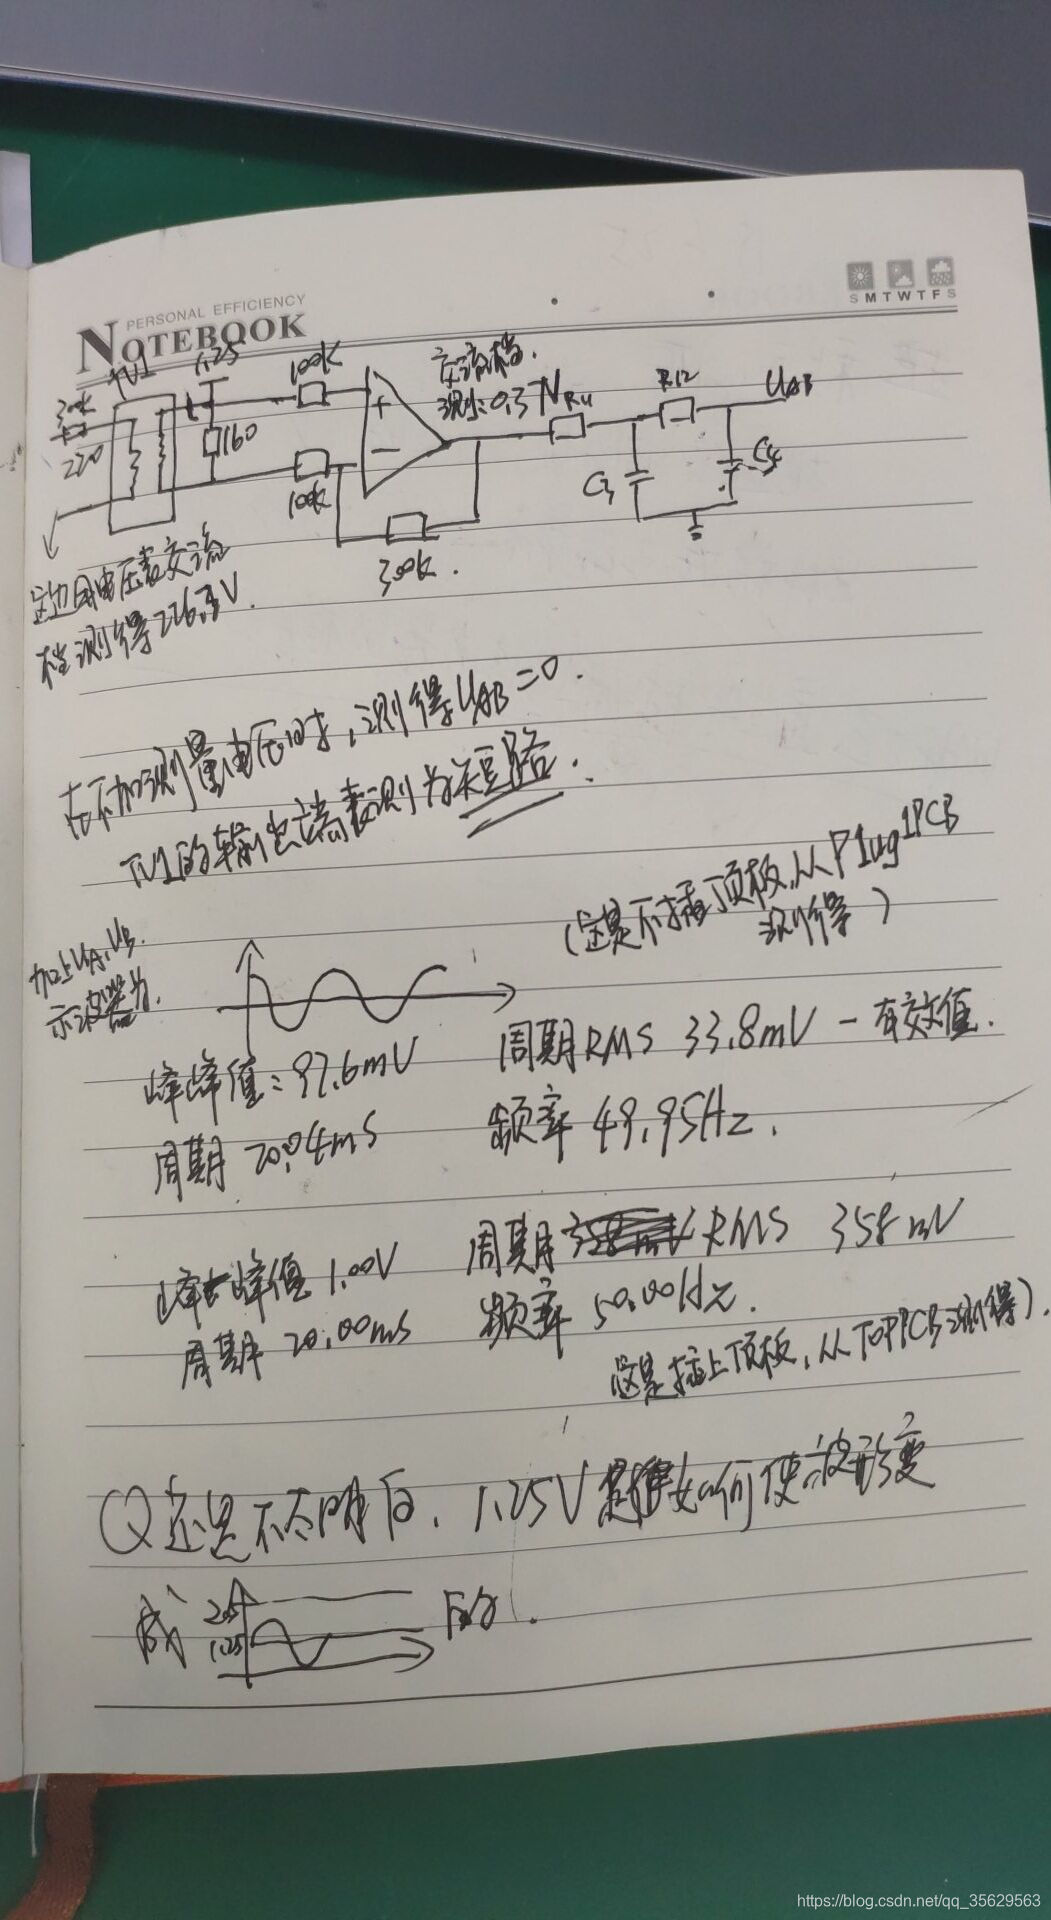 PERSONAL EFFICIENCY
NOTEBOOK
SMTWTFS
TV1
1.25
100k
交流档.
测: 0.37V
30k
220
160
100k
R11
R12
UAB
C3
C4
300k.
这边用电压表交流
档测得226.3V.
在不加测量电压时,测得UAB=0.
TV1的输出端表测为短路.
(这是不插顶板,从Plug1PCB
测得)
加上UA、UB.
示波器为.
峰峰值:97.6mV
周期RMS 33.8mV-有效值.
周期 20.04ms
频率 49.95Hz.
峰峰值 1.00V
周期 RMS 358mV
周期 20.00ms
频率 50.00Hz.
(这是插上顶板,从TOPPCB测得).
Q还是不太明白,1.25V是如何使波形变
成
2.5
1.25
的.
https://blog.csdn.net/qq_35629563